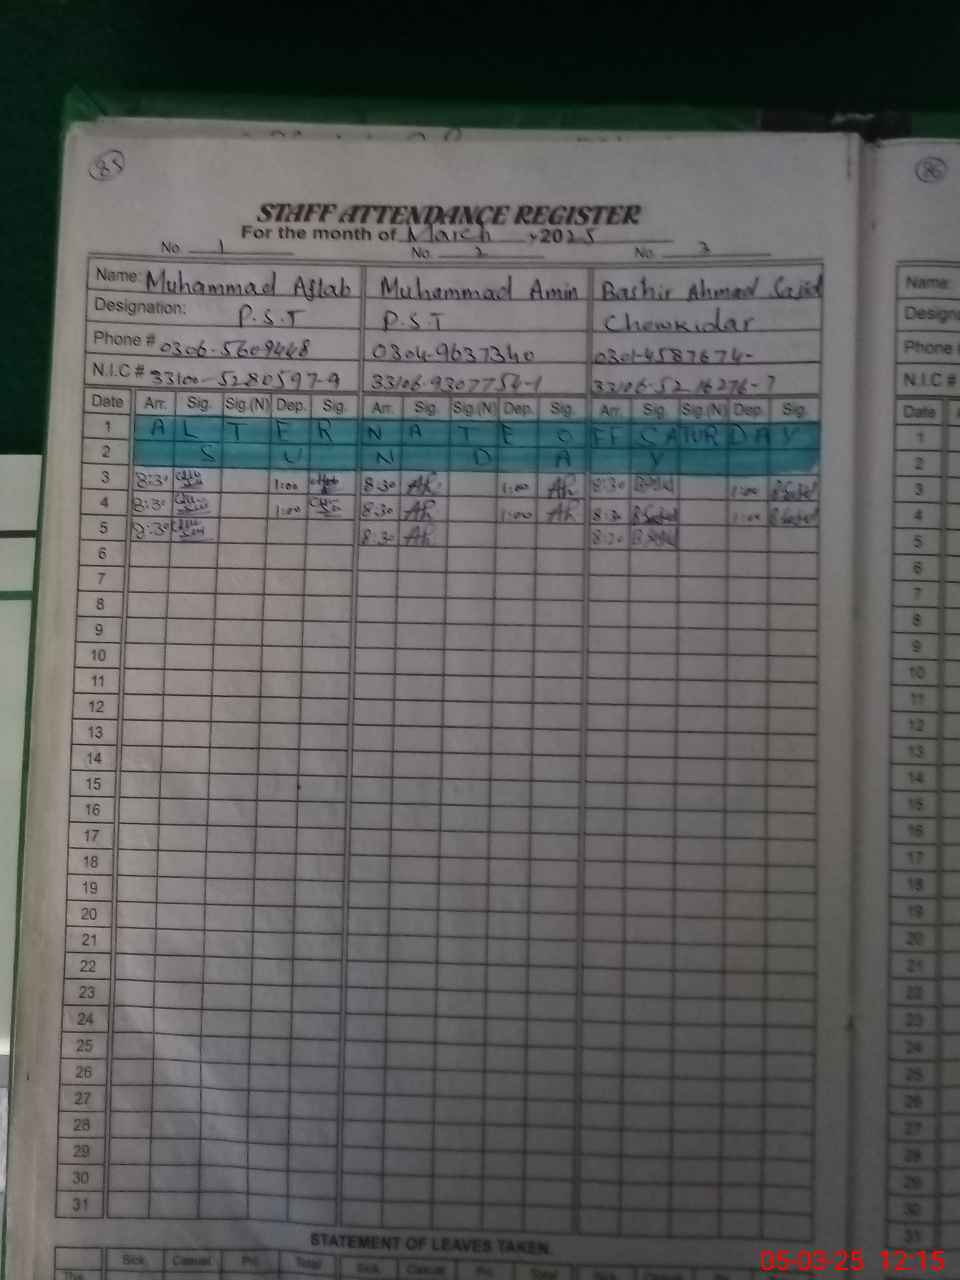 85
86
STAFF ATTENDANCE REGISTER
For the month of March 2025
No. 1 No. 2 No. 3
Name: Muhammad Aftab Muhammad Amin Bashir Ahmad Sajid
Designation: P.S.T P.S.T Chowkidar
Phone # 0306-5609448 0304-9637340 0301-4587674-
N.I.C # 33100-5280597-9 33106-9307754-1 33106-5216276-7
Date Arr. Sig. Sig.(N) Dep. Sig. Arr. Sig. Sig.(N) Dep. Sig. Arr. Sig. Sig.(N) Dep. Sig.
1 ALTERNATE OFF SATURDAY
2 SUNDAY
3 8:30 1:00 8:30 1:00 8:30 1:00
4 8:30 1:00 8:30 1:00 8:30 1:00
5 8:30 8:30 8:30
6
7
8
9
10
11
12
13
14
15
16
17
18
19
20
21
22
23
24
25
26
27
28
29
30
31
STATEMENT OF LEAVES TAKEN
Sick Casual Pri. Total Sick Casual Pri. Total Sick Casual
Name:
Phone #
N.I.C #
Date
1
2
3
4
5
6
7
8
9
10
11
12
13
14
15
16
17
18
19
20
21
22
23
24
25
26
27
28
29
30
31
05-03-25 12:15